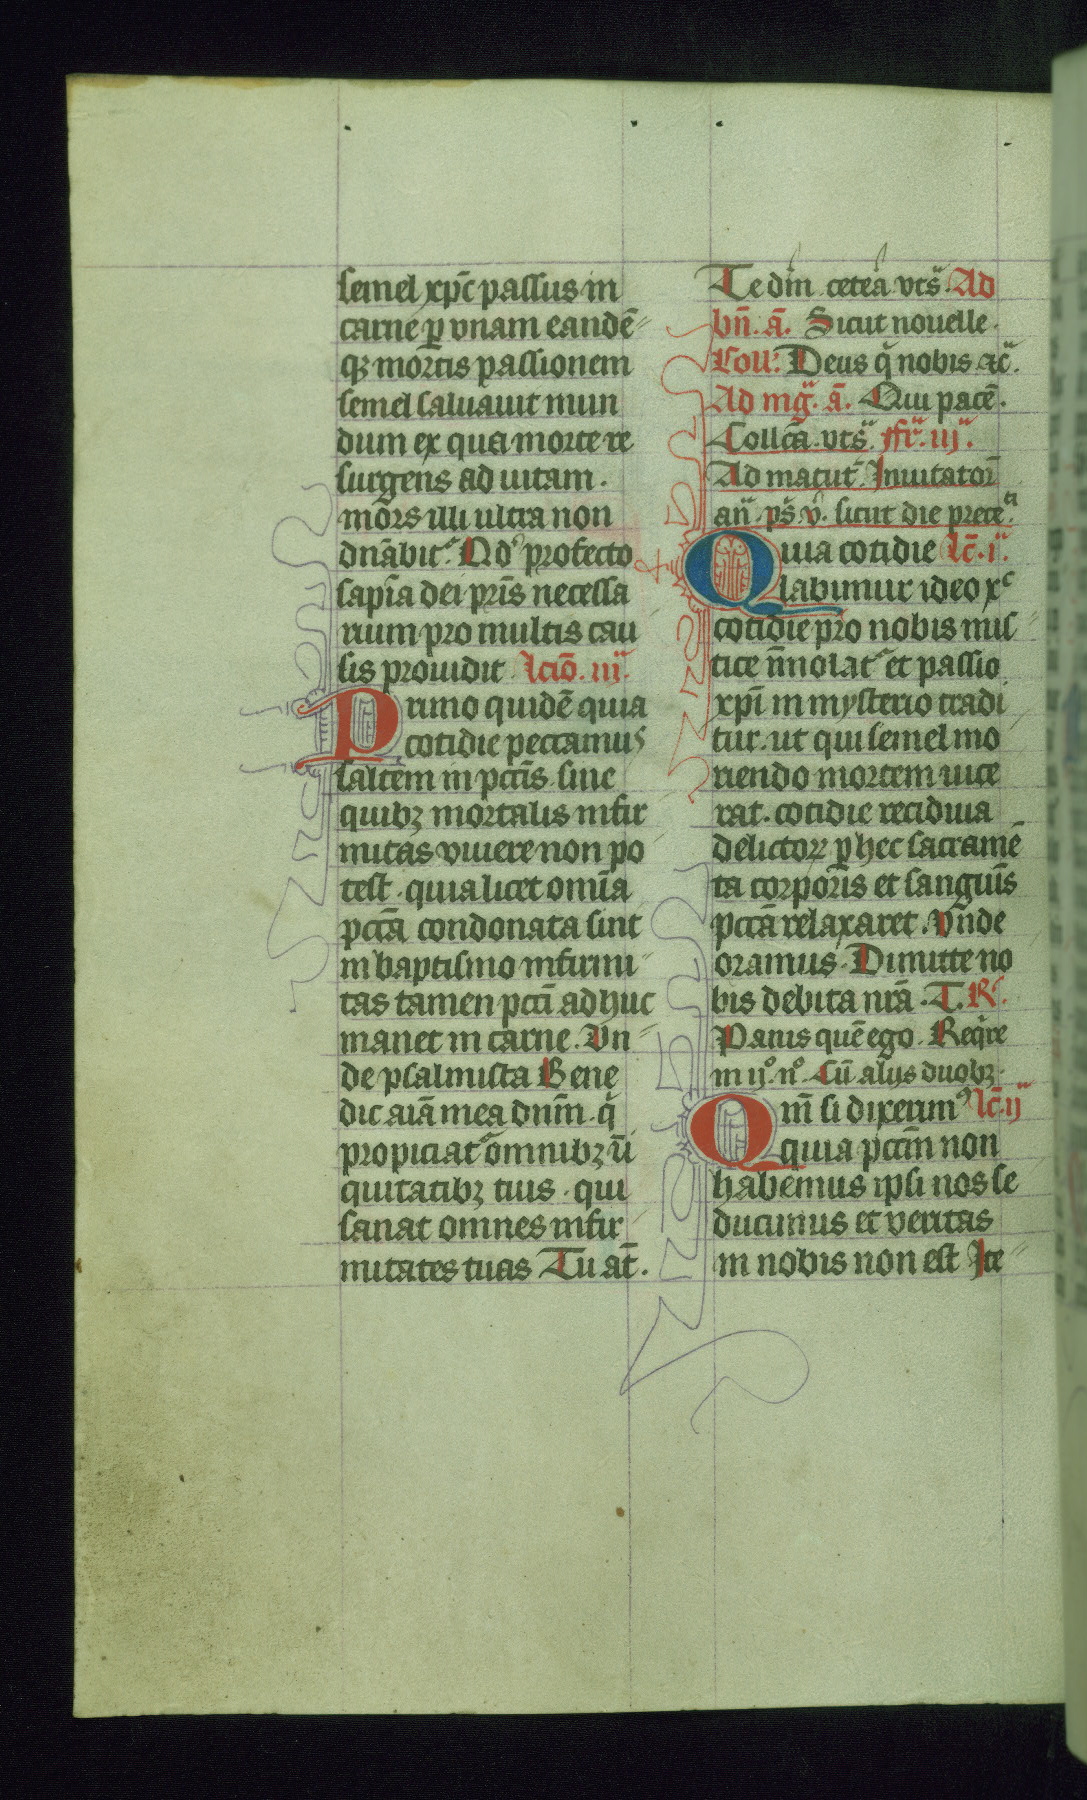 semel xpc̄ passus in
carne ꝑ vnam eandē
qꝫ mortis passionem
semel saluauit mun
dum ex qua morte re
surgens ad uitam.
mors illi ultra non
dn̄abit᷑. Qd' profecto
sapīa dei pr̄is necessa
rium pro multis cau
sis prouidit lc̄io. iii.
Primo quidē quia
cotidie peccamus
saltem in pctīs. sine
quibꝫ mortalis infir
mitas viuere non po
test. quia licet omīa
pctā condonata sint
in baptismo infirmi
tas tamen pctī adhuc
manet in carne. Vn
de psalmista Bene
dic aīa mea dnm̄. q̄
propiciat᷑ omnibꝫ ī
quitatibꝫ tuis. qui
sanat omnes infir
mitates tuas Tu at̄.
Te dm̄ cetea vts̄. Ad
bn̄. ā. Sicut nouelle.
Coll'. Deus q̄ nobis ⁊c̄.
Ad mḡ. ā. Qui pacē.
Collcā. vts̄. ffr̄. iij.
Ad matut̄. Inuitator̄
an̄. ps̄. v̄. sicut die prece.
Quia cotidie lc̄. i.
labimur ideo xc
cotidie pro nobis mis
tice īmolat᷑ et passio
xpī in mysterio tradi
tur. ut qui semel mo
riendo mortem uice
rat. cotidie recidiua
delictoꝝ ꝑ hec sacramē
ta corporis et sanguīs
pctā relaxaret. Vnde
oramus. Dimitte no
bis debita nrā. T. R'.
Panis quē ego. Reqͥre
in ij.º n.º cū alijs duobꝫ.
Qm̄ si dixerimꝰ lc̄. ij
quia pctm̄ non
habemus ipsi nos se
ducimus et veritas
in nobis non est Ite